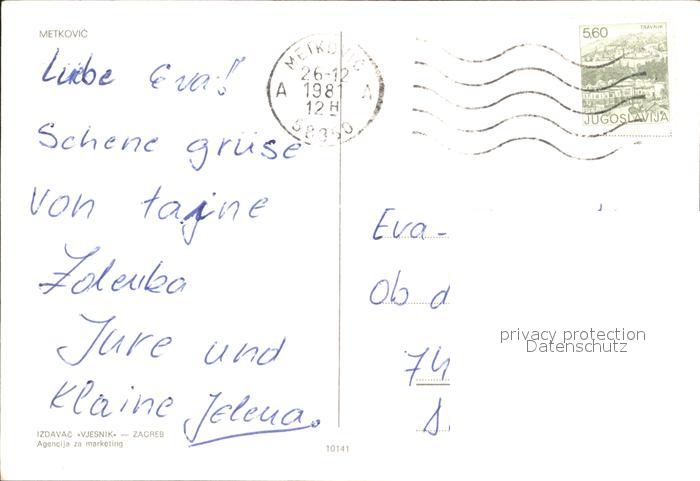 METKOVIĆ
Liebe Eva!
Schene grüse
von tajne
Zdenka
Jure und
Klaine Jelena.
IZDAVAČ «VJESNIK» — ZAGREB
Agencija za marketing
10141
METKOVIĆ
26-12
A 1981 A
12 H
58350
TRAVNIK
5,60
JUGOSLAVIJA
Eva-
Ob d
74
privacy protection
Datenschutz